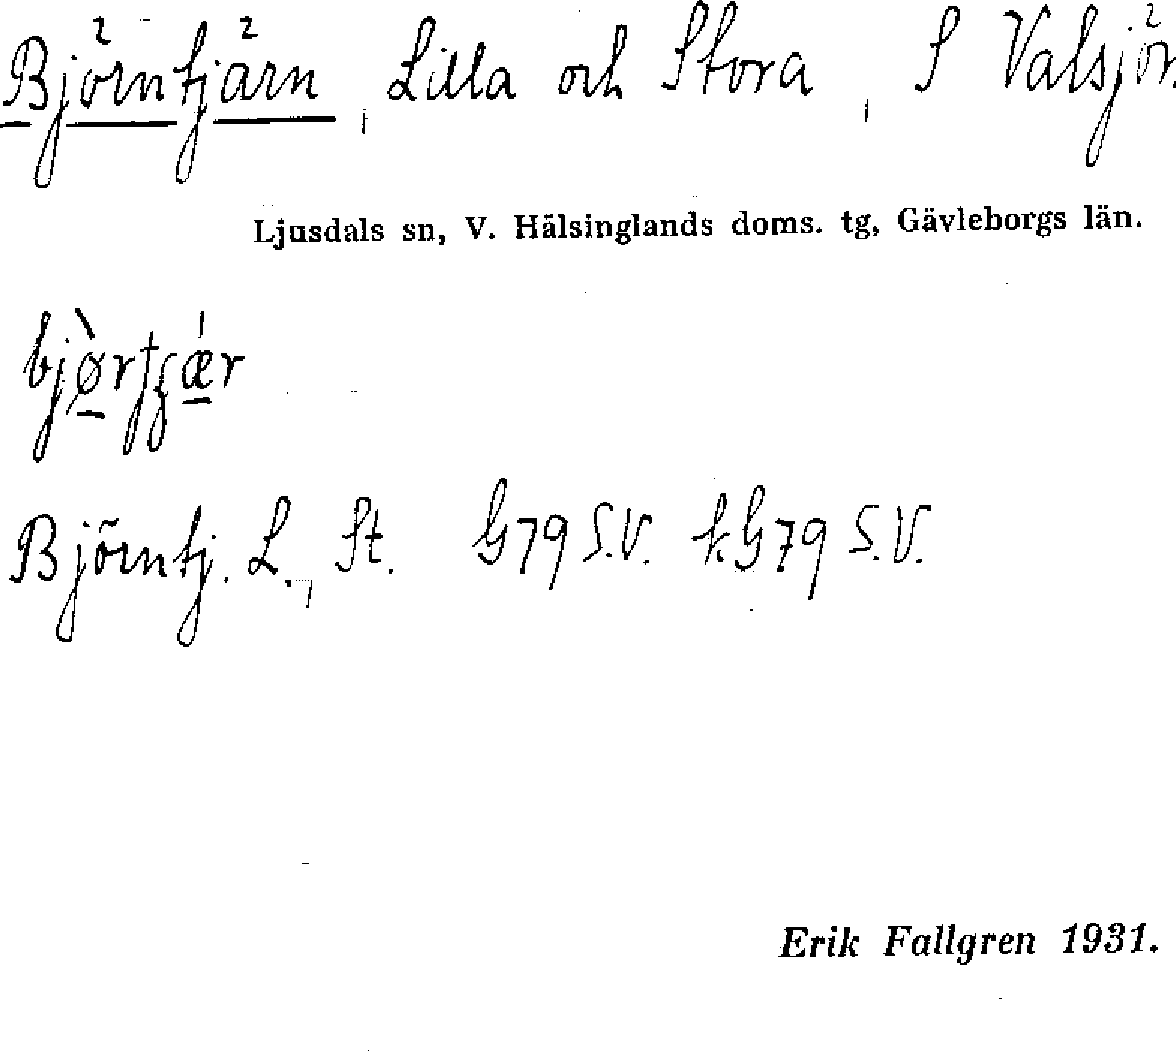 Björntjärn, Lilla och Stora, S Valsjön
Ljusdals sn, V. Hälsinglands doms. tg, Gävleborgs län.
Björntj. L., St. G79 S.V. k.G79 S.V.
Erik Fallgren 1931.